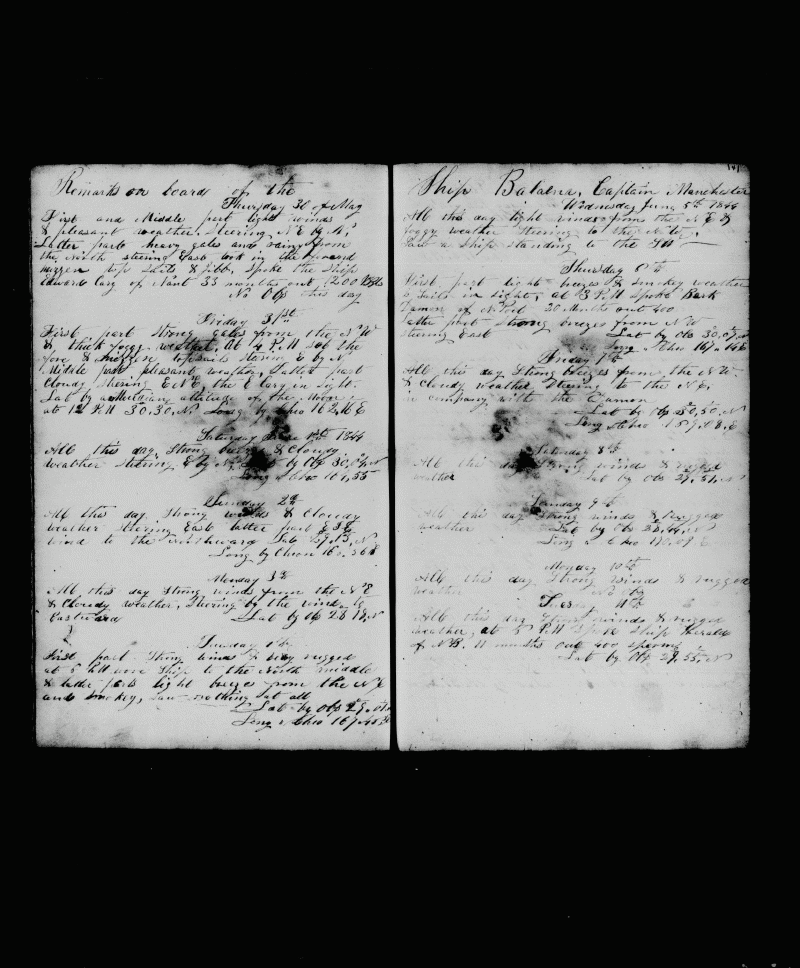 Remarks on board of the
Thursday 30 of May
First and Middle part light winds
& pleasant weather, Steering N E by N,
Latter part heavy gales and rainy from
the North steering East, took in the
mizzen top Sails & jibb, Spoke the Ship
Edward Cary of Nant 33 months out, 1200 bbls
No Obs this day
Friday 31st
First part strong gales from the N W
& thick foggy weather, At 4 P.M set the
fore & mizzen topsails steering E by N
Middle part pleasant weather, Lattert part
Cloudy stering E N E, the E Cary in Sight.
Lat by a Meridian altitude of the Moon
at 12 P.M 30,30, N Long by Chro 162,16 E
Saturday June 1st 1844
All this day, Strong breezes & Cloudy
weather Stering, E by N, Lat by Obs 30, N
Long Chro 164,55
Sunday 2d
All this day, Strong winds & Cloudy
weather Steering East latter part E S E
wind to the Lat 29,15, N
Long by Chron 165,36 E
Monday 3d
All this day Strong winds from the N E
& Cloudy weather, Stering by the wind to
Eastward Lat by Obs 28 18, N
Tuesday 4th
First part Strong winds & very rugged
at 5 P.M one Ship to the North middle
& latter parts light breezes from the N E
and smokey, Saw nothing Lat all
Lat by Obs 29,
Long Chro 167,
Ship Balaena, Captain Manchester
Wednesday June 5th 1844
All this day light winds from the N E &
foggy weather Steering to the
Saw a Ship standing to the SW
Thursday 6th
First part light breezes & smokey weather
Sails in sight, at 3 P.M spoke Bark
of N 20 Months out 400
latter part strong breezes from N W
steering East Lat by Obs 30,
Long Chro 167,
Friday 7th
All this day Strong breezes from the N W.
& Cloudy weather Steering to the N E,
in company with the
Lat by Obs 30,50, N
Long Chro 169,08, E
Saturday 8th
All this day Strong winds & rugged
weather Lat by Obs 29,51, N
Sunday 9th
All this day Strong winds & Rugged
weather Lat by Obs N
Long Chro 170,09 E
Monday 10th
All this day Strong Winds & rugged
weather No Obs
Tuesday 11th
All this day Strong winds & rugged
weather, at 5 P.M Spoke Ship Herald
of N.B. 11 months out 400 sperm
Lat by Obs 29,55, N